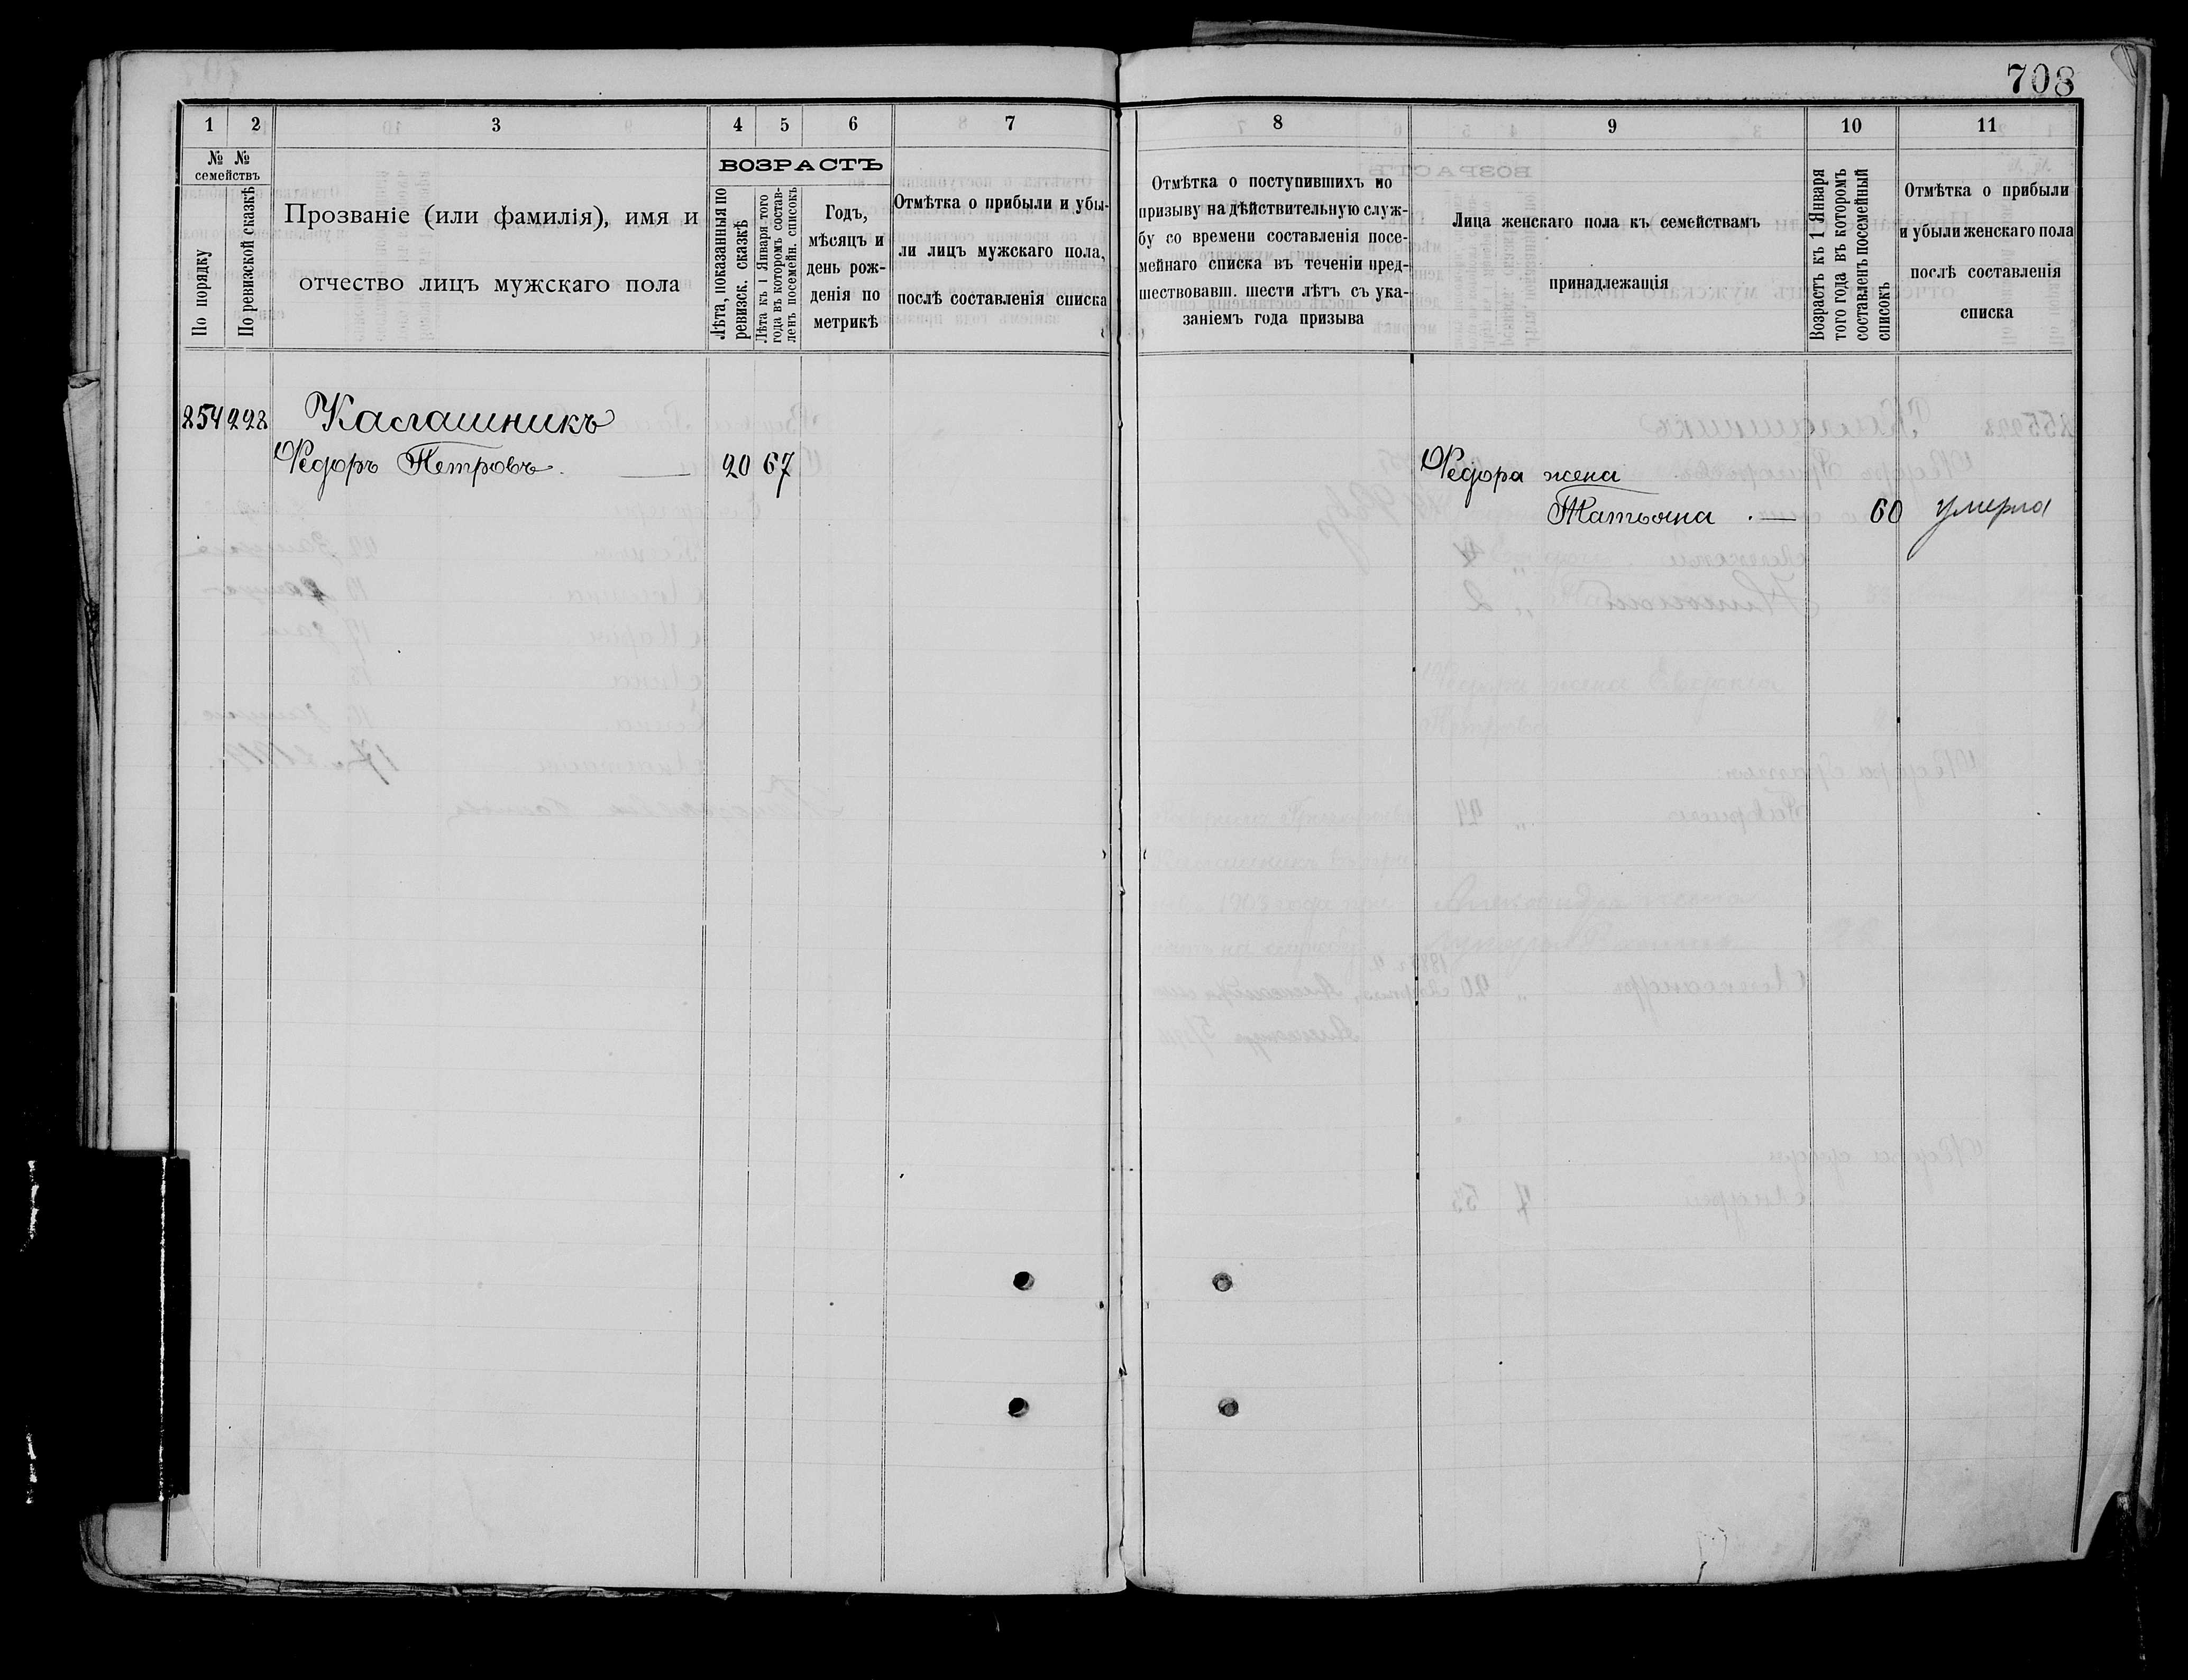 708
1 2 3 4 5 6 7
№ № семействъ
По порядку
По ревизской сказкѣ
Прозваніе (или фамилія), имя и
отчество лицъ мужскаго пола
ВОЗРАСТЪ
Лѣта, показанныя по
ревизск. сказкѣ
Лѣта къ 1 Января того
года въ которомъ состав-
ленъ посемейн. списокъ
Годъ,
мѣсяцъ и
день рож-
денія по
метрикѣ
Отмѣтка о прибыли и убы-
ли лицъ мужскаго пола,
послѣ составленія списка
254 228 Калашникъ
Ѳедоръ Петровъ. 20 67
8 9 10 11
Отмѣтка о поступившихъ по
призыву на дѣйствительную служ-
бу со времени составленія посе-
мейнаго списка въ теченіи пред-
шествовавш. шести лѣтъ съ ука-
заніемъ года призыва
Лица женскаго пола къ семействамъ
принадлежащія
Возрастъ къ 1 Января
того года въ которомъ
составленъ посемейный
списокъ
Отмѣтка о прибыли
и убыли женскаго пола
послѣ составленія
списка
Ѳедора жена
Татьяна . — 60 умерла